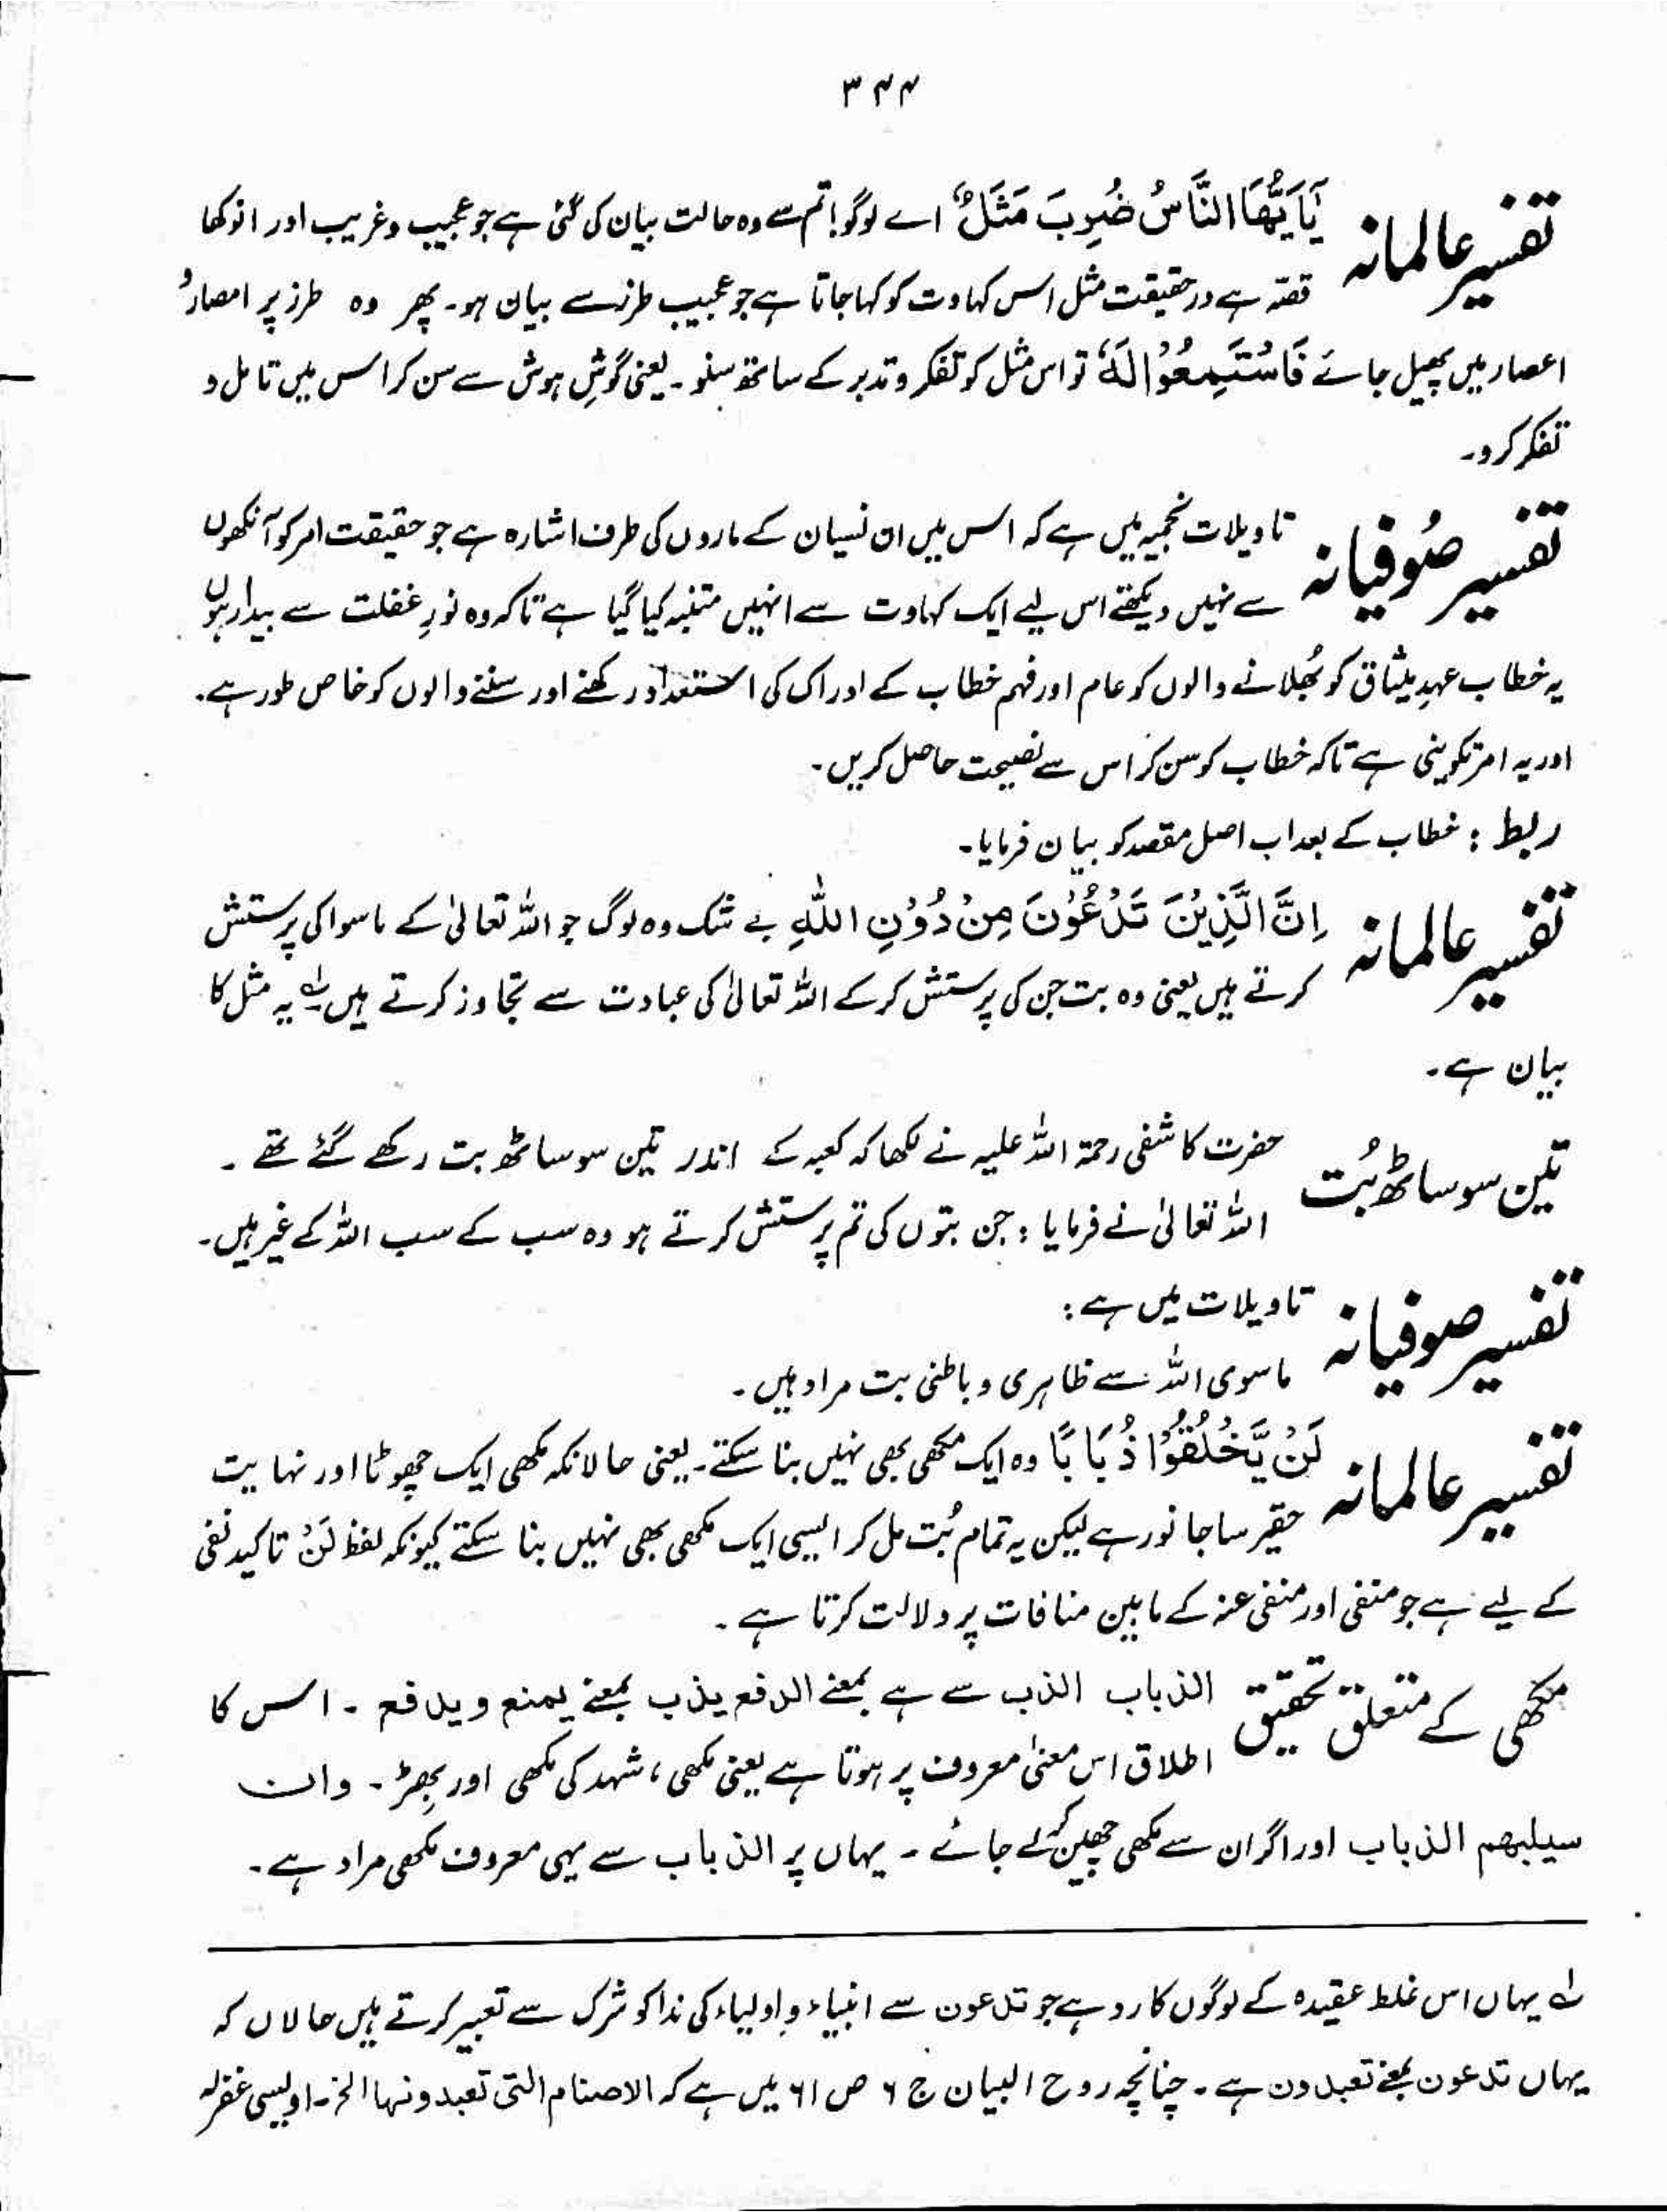 ۳۴۴
تفسیر عالمانہ
یٰٓاَیُّھَا النَّاسُ ضُرِبَ مَثَلٌ اے لوگو! تم سے وہ حالت بیان کی گئی ہے جو عجیب و غریب اور انوکھا
قصّہ ہے درحقیقت مثل اس کہاوت کو کہا جاتا ہے جو عجیب طرز سے بیان ہو۔ پھر وہ طرز پر امصار و
اعصار میں پھیل جائے فَاسْتَمِعُوْا لَهٗ تو اس مثل کو تفکر و تدبر کے ساتھ سنو۔ یعنی گوشِ ہوش سے سن کر اس میں تامل و
تفکر کرو۔
تفسیر صُوفیانہ
تاویلات نجمیہ میں ہے کہ اس میں ان نسیان کے ماروں کی طرف اشارہ ہے جو حقیقت امر کو آنکھوں
سے نہیں دیکھتے اس لیے ایک کہاوت سے انہیں متنبہ کیا گیا ہے تاکہ وہ نورِ غفلت سے بیدار ہوں
یہ خطاب عہدِ میثاق کو بُھلانے والوں کو عام اور فہم خطاب کے ادراک کی استعداد رکھنے اور سننے والوں کو خاص طور ہے۔
اور یہ امر تکوینی ہے تاکہ خطاب کو سن کر اس سے نصیحت حاصل کریں۔
ربط : خطاب کے بعد اب اصل مقصد کو بیان فرمایا۔
تفسیر عالمانہ
اِنَّ الَّذِیْنَ تَدْعُوْنَ مِنْ دُوْنِ اللّٰهِ بے شک وہ لوگ جو اللہ تعالیٰ کے ماسوا کی پرستش
کرتے ہیں یعنی وہ بت جن کی پرستش کرکے اللہ تعالیٰ کی عبادت سے تجاوز کرتے ہیں لہ یہ مثل کا
بیان ہے۔
تین سو ساٹھ بُت
حضرت کاشفی رحمۃ اللہ علیہ نے لکھا کہ کعبہ کے اندر تین سو ساٹھ بت رکھے گئے تھے ۔
اللہ تعالیٰ نے فرمایا : جن بتوں کی تم پرستش کرتے ہو وہ سب کے سب اللہ کے غیر ہیں۔
تفسیر صوفیانہ
تاویلات میں ہے :
ماسوی اللہ سے ظاہری و باطنی بت مراد ہیں ۔
تفسیر عالمانہ
لَنْ یَّخْلُقُوْا ذُبَابًا وہ ایک مکھی بھی نہیں بنا سکتے۔ یعنی حالانکہ مکھی ایک چھوٹا اور نہایت
حقیر سا جانور ہے لیکن یہ تمام بُت مل کر ایسی ایک مکھی بھی نہیں بنا سکتے کیونکہ لفظ لَنْ تاکید نفی
کے لیے ہے جو منفی اور منفی عنہ کے مابین منافات پر دلالت کرتا ہے ۔
مکھی کے متعلق تحقیق
الذباب الذب سے ہے بمعنے الدفع یذب بمعنے یمنع و یدفع ۔ اس کا
اطلاق اس معنیٰ معروف پر ہوتا ہے یعنی مکھی ، شہد کی مکھی اور بِھڑ ۔ وان
سیلبھم الذباب اور اگر ان سے مکھی چھین کر لے جائے ۔ یہاں پر الذباب سے یہی معروف مکھی مراد ہے ۔
لہ یہاں اس غلط عقیدہ کے لوگوں کا رد ہے جو تدعون سے انبیاء و اولیاء کی ندا کو شرک سے تعبیر کرتے ہیں حالاں کہ
یہاں تدعون بمعنے تعبدون ہے۔ چنانچہ روح البیان ج ۶ ص ۶۱ میں ہے کہ الاصنام التی تعبدونها الخ۔ اویسی غفرلہ